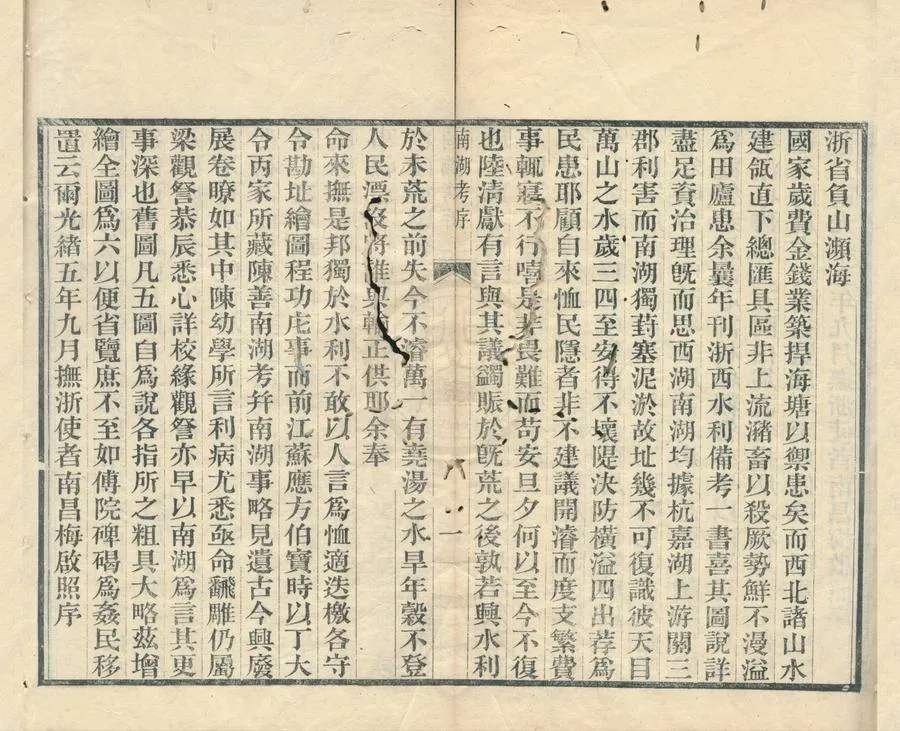 浙省負山瀕海
國家歲費金錢業築捍海塘以禦患矣而西北諸山水
建瓴直下總匯具區非上流瀦畜以殺厥勢鮮不漫溢
爲田廬患余曩年刊浙西水利備考一書喜其圖說詳
盡足資治理旣而思西湖南湖均據杭嘉湖上游關三
郡利害而南湖獨葑塞泥淤故址幾不可復識彼天目
萬山之水歲三四至安得不壞隄決防橫溢四出荐爲
民患耶顧自來恤民隱者非不建議開濬而度支繁費
事輒寢不行嘻是非畏難而苟安旦夕何以至今不復
也陸清獻有言與其議蠲賑於旣荒之後孰若興水利
南湖考序
一
於未荒之前失今不濬萬一有堯湯之水旱年穀不登
人民漂沒將誰與輸正供耶余奉
命來撫是邦獨於水利不敢以人言爲恤適迭檄各守
令勘址繪圖程功庀事而前江蘇應方伯寶時以丁大
令丙家所藏陳善南湖考幷南湖事略見遺古今興廢
展卷暸如其中陳幼學所言利病尤悉亟命飜雕仍屬
梁觀詧恭辰悉心詳校緣觀詧亦早以南湖爲言其更
事深也舊圖凡五圖自爲說各指所之粗具大略茲增
繪全圖爲六以便省覽庶不至如傅院碑碣爲姦民移
置云爾光緒五年九月撫浙使者南昌梅啟照序